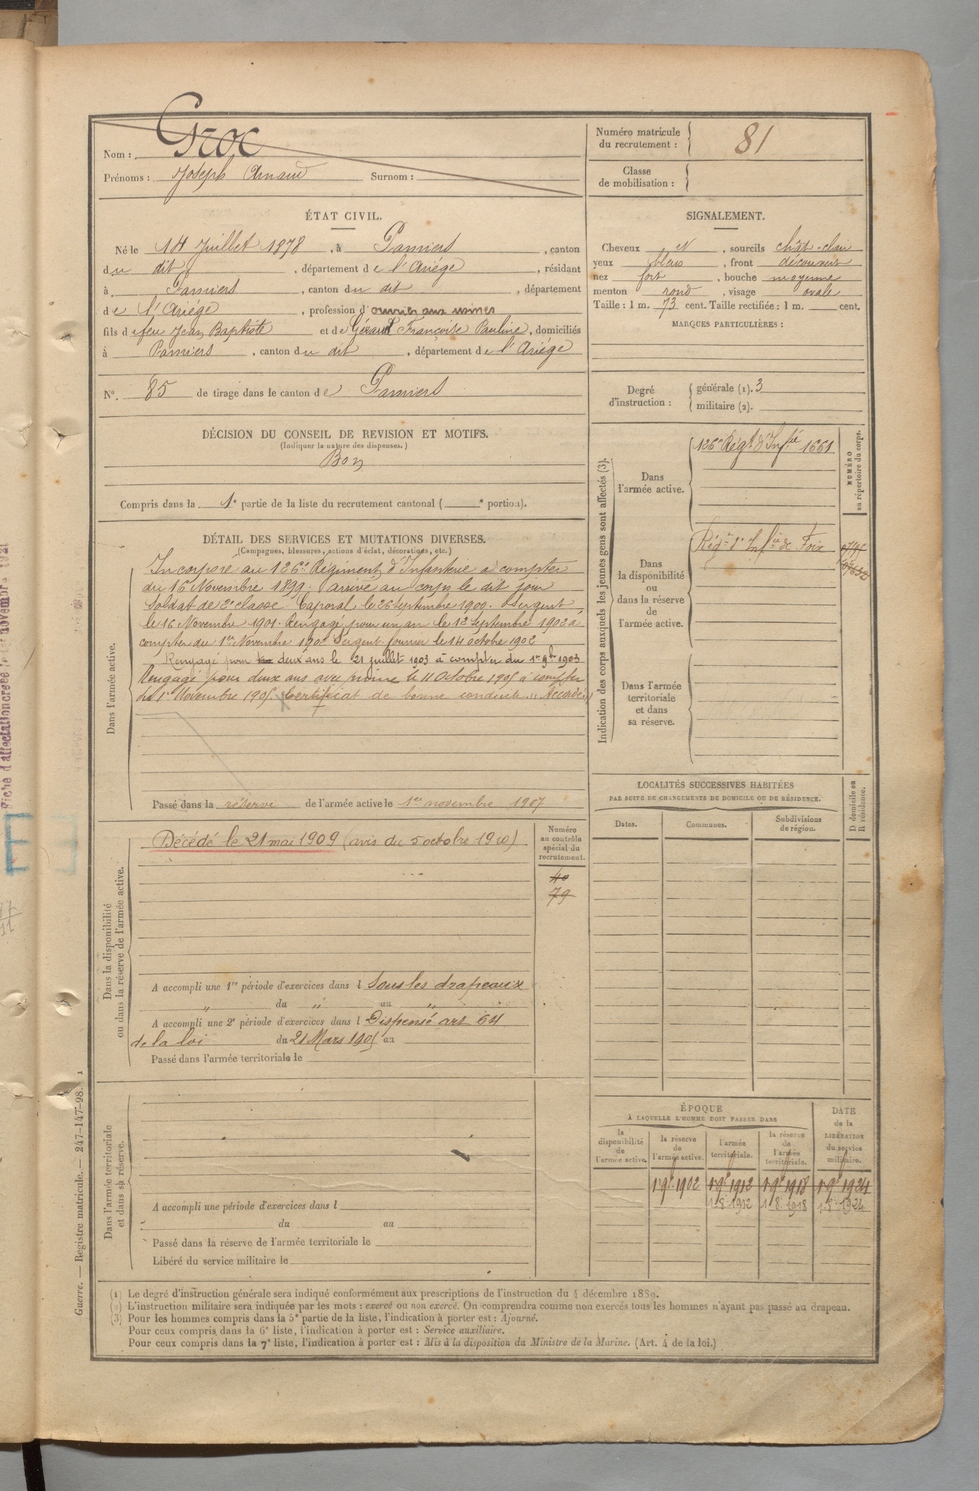 Nom : Groc
Prénoms : Joseph Arnaud Surnom :
Numéro matricule
du recrutement : 81
Classe
de mobilisation :
ÉTAT CIVIL.
Né le 14 Juillet 1878, à Pamiers, canton
du dit, département de l'Ariége, résidant
à Pamiers, canton du dit, département
de l'Ariége, profession d'ouvrier aux usines
fils de feu Jean Baptiste et de Géraud Françoise Pauline, domiciliés
à Pamiers, canton du dit, département de l'Ariége
N° 85 de tirage dans le canton de Pamiers
SIGNALEMENT.
Cheveux d, sourcils chât-clair
yeux bleus, front découvert
nez fort, bouche moyenne
menton rond, visage ovale
Taille : 1 m. 73 cent. Taille rectifiée : 1 m. cent.
MARQUES PARTICULIÈRES :
Degré
d'instruction :
générale (1). 3
militaire (2).
DÉCISION DU CONSEIL DE REVISION ET MOTIFS.
(Indiquer la nature des dispenses.)
Bon
Compris dans la 1e partie de la liste du recrutement cantonal ( e portion).
DÉTAIL DES SERVICES ET MUTATIONS DIVERSES.
(Campagnes, blessures, actions d'éclat, décorations, etc.)
Dans l'armée active.
Incorporé au 126e Régiment d'Infanterie à compter
du 16 Novembre 1899. Arrivé au corps le dit jour
Soldat de 2e classe. Caporal le 26 Septembre 1900. Sergent
le 16 Novembre 1901. Rengagé pour un an le 12 Septembre 1902 à
compter du 1er Novembre 1902 Sergent fourrier le 14 octobre 1902
Rengagé pour deux ans le 21 juillet 1903 à compter du 1er 9bre 1903
Rengagé pour deux ans avec prime le 11 Octobre 1905 à compter
du 1er Novembre 1905 Certificat de bonne conduite "Accordé"
Passé dans la réserve de l'armée active le 1er novembre 1907
Indication des corps auxquels les jeunes gens sont affectés (3).
Dans
l'armée active.
126e Régt d'Infie 1661
NUMÉRO
au répertoire du corps.
Dans
la disponibilité
ou
dans la réserve
de
l'armée active.
Régt d'Infie de Foix
Dans l'armée
territoriale
et dans
sa réserve.
LOCALITÉS SUCCESSIVES HABITÉES
PAR SUITE DE CHANGEMENTS DE DOMICILE OU DE RÉSIDENCE.
Dates.
Communes.
Subdivisions
de région.
D domicile ou
R résidence.
Dans la disponibilité
ou dans la réserve de l'armée active.
Décédé le 21 mai 1909 (avis du 5 octobre 1910)
Numéro
au contrôle
spécial du
recrutement.
40
79
A accompli une 1re période d'exercices dans l Sous les drapeaux
" du " au "
A accompli une 2e période d'exercices dans l Dispensé art 64
de la loi du 21 Mars 1905 au
Passé dans l'armée territoriale le
Dans l'armée territoriale
et dans sa réserve.
A accompli une période d'exercices dans l
du au
Passé dans la réserve de l'armée territoriale le
Libéré du service militaire le
ÉPOQUE
À LAQUELLE L'HOMME DOIT PASSER DANS
la
disponibilité
de
l'armée active.
la réserve
de
l'armée active.
l'armée
territoriale.
la réserve
de
l'armée
territoriale.
DATE
de la
LIBÉRATION
du service
militaire.
1 9bre 1902 1 9bre 1912 1 9bre 1918 1 9bre 1924
1.8.1912 1.8.1918 1.8.1924
(1) Le degré d'instruction générale sera indiqué conformément aux prescriptions de l'instruction du 4 décembre 1889.
(2) L'instruction militaire sera indiquée par les mots : exercé ou non exercé. On comprendra comme non exercés tous les hommes n'ayant pas passé au drapeau.
(3) Pour les hommes compris dans la 5e partie de la liste, l'indication à porter est : Ajourné.
Pour ceux compris dans la 6e liste, l'indication à porter est : Service auxiliaire.
Pour ceux compris dans la 7e liste, l'indication à porter est : Mis à la disposition du Ministre de la Marine. (Art. 4 de la loi.)
Guerre. — Registre matricule. — 247-147-98. 1